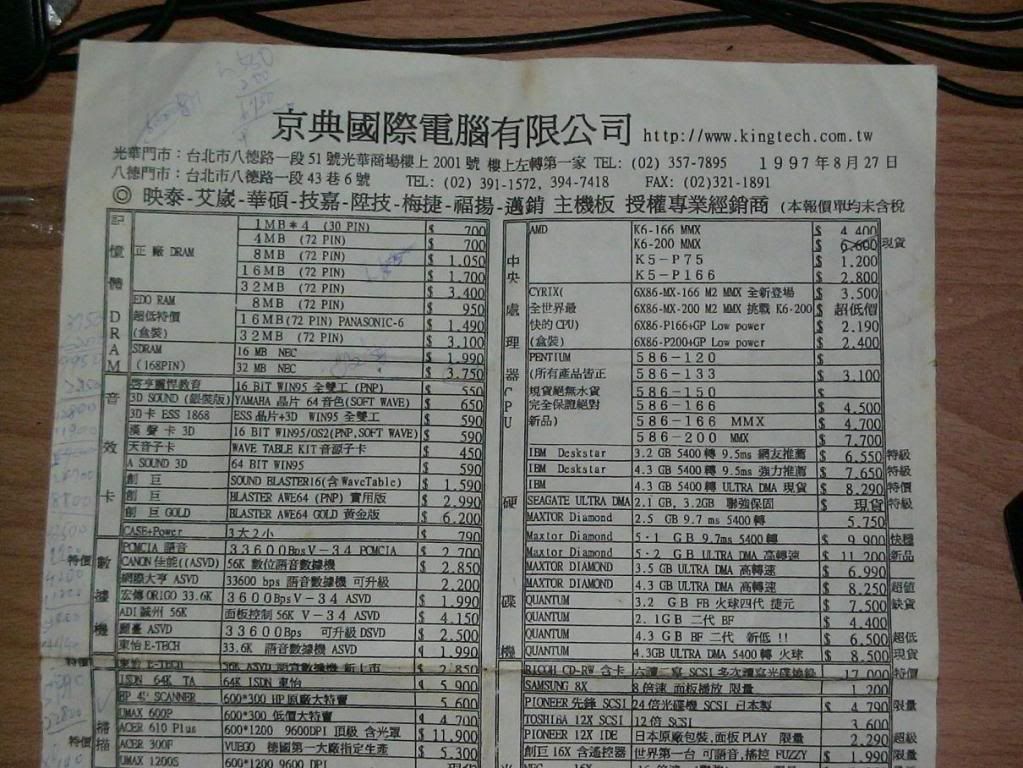 京典國際電腦有限公司 http://www.kingtech.com.tw
光華門市：台北市八德路一段51號光華商場樓上2001號 樓上左轉第一家 TEL: (02) 357-7895 1997年8月27日
八德門市：台北市八德路一段43巷6號 TEL: (02) 391-1572, 394-7418 FAX: (02)321-1891
◎ 映泰-艾崴-華碩-技嘉-陞技-梅捷-福揚-邁銷 主機板 授權專業經銷商 (本報價單均未含稅
記憶體DRAM
正廠 DRAM
1MB*4 (30 PIN) $ 700
4MB (72 PIN) $ 700
8MB (72 PIN) $ 1,050
16MB (72 PIN) $ 1,700
32MB (72 PIN) $ 3,400
EDO RAM 8MB (72 PIN) $ 950
超低特價 16MB(72 PIN) PANASONIC-6 $ 1,490
(盒裝) 32MB (72 PIN) $ 3,100
SDRAM 16 MB NEC $ 1,990
(168PIN) 32 MB NEC $ 3,750
音效卡
16 BIT WIN95 全雙工 (PNP) $ 550
3D SOUND (銀裝版) YAMAHA 晶片 64音色(SOFT WAVE) $ 650
3D卡 ESS 1868 ESS晶片+3D WIN95 全雙工 $ 590
漢聲卡 3D 16 BIT WIN95/OS2(PNP,SOFT WAVE) $ 590
天音子卡 WAVE TABLE KIT音源子卡 $ 450
A SOUND 3D 64 BIT WIN95 $ 590
創巨 SOUND BLASTER16(含WaveTable) $ 1,590
創巨 BLASTER AWE64 (PNP) 實用版 $ 2,990
創巨 GOLD BLASTER AWE64 GOLD 黃金版 $ 6,200
CASE+Power 3大2小 $ 790
數據機
PCMCIA 語音 33600Bps V-34 PCMCIA $ 2,700
特價 CANON佳能((ASVD) 56K 數位語音數據機 $ 2,850
網際大亨 ASVD 33600 bps 語音數據機 可升級 2,200
宏傳ORIGO 33.6K 33600Bps V-34 ASVD $ 1,990
ADI誠州 56K 面板控制56K V-34 ASVD $ 4,150
ASVD 33600Bps 可升級DSVD $ 2,500
東怡E-TECH 33.6K 語音數據機 ASVD $ 1,990
特價 東怡 E-TECH 56K ASVD 語音數據機 新上市 $ 2,850
ISDN 64K TA 64K ISDN 東怡 $ 5,900
掃描
HP 4" SCANNER 600*300 HP原廠大特賣 5,600
UMAX 600P 600*300 低價大特賣 $ 4,700
ACER 610 Plus 600*1200 9600DPI 頂級 含光罩 $ 11,900
特價 ACER 300F VUEGO 德國第一大廠指定生產 $ 5,300
UMAX 1200S 600*1200 9600 DPI
中央處理器CPU
AMD K6-166 MMX $ 4,400
K6-200 MMX $ 6,600 現貨
K5-P75 $ 1,200
K5-P166 $ 2,800
CYRIX( 6X86-MX-166 M2 MMX 全新登場 $ 3,500
全世界最 6X86-MX-200 M2 MMX 挑戰 K6-200 $ 超低價
快的CPU) 6X86-P166+GP Low power $ 2,190
(盒裝) 6X86-P200+GP Low power $ 2,400
PENTIUM 586-120 $
(所有產品皆正 586-133 $ 3,100
現貨絕無水貨 586-150
完全保證絕對 586-166 $ 4,500
新品) 586-166 MMX $ 4,700
586-200 MMX $ 7,700
硬碟機
IBM Deskstar 3.2 GB 5400轉 9.5ms 網友推薦 $ 6,550 特級
IBM Deskstar 4.3 GB 5400轉 9.5ms 強力推薦 $ 7,650 特級
IBM 4.3 GB 5400轉 ULTRA DMA 現貨 $ 8,290 特價
SEAGATE ULTRA DMA 2.1 GB, 3.2GB 聯強保固 $ 現貨 特級
MAXTOR Diamond 2.5 GB 9.7 ms 5400轉 5,750
Maxtor Diamond 5.1 GB 9.7ms 5400轉 $ 9,900 快穩
Maxtor Diamond 5.2 GB ULTRA DMA 高轉速 $ 11,200 新品
MAXTOR DIAMOND 3.5 GB ULTRA DMA 高轉速 $ 6,990
MAXTOR DIAMOND 4.3 GB ULTRA DMA 高轉速 $ 8,250 超值
QUANTUM 3.2 GB FB 火球四代 捷元 $ 7,500 缺貨
QUANTUM 2.1GB 二代 BF $ 4,400
QUANTUM 4.3 GB BF 二代 新低!! $ 6,500 超低
QUANTUM 4.3GB ULTRA DMA 5400轉 火球 $ 8,500 現貨
RICOH CD-RW 含卡 六讀二寫 SCSI 多次讀寫光碟燒錄 17,000 特價
SAMSUNG 8X 8倍速 面板播放 限量 $ 1,200
PIONEER 先鋒 SCSI 24倍光碟機 SCSI 日本製 $ 4,790 限量
TOSHI6A 12X SCSI 12倍 SCSI 3,600
PIONEER 12X IDE 日本原廠包裝,面板PLAY 限量 2,290 超級
創巨 16X 含遙控器 世界第一台 可語音,搖控 FUZZY $ 1,990 限量